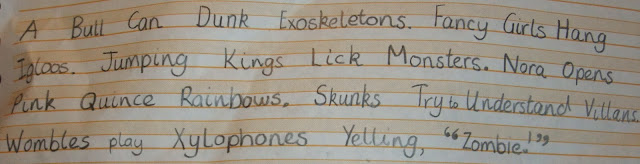 A Bull Can Dunk Exoskeletons. Fancy Girls Hang
Igloos. Jumping Kings Lick Monsters. Nora Opens
Pink Quince Rainbows. Skunks Try to Understand Villans.
Wombles play Xylophones Yelling, "Zombie!"